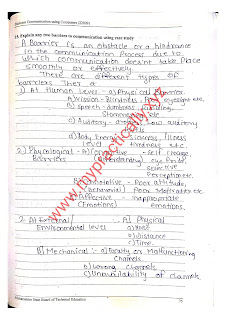 Business Communication Using Computers (22009)
14. Explain any two barriers to communication using case study
A Barrier is an obstacle or a hindrance
in the communication Process due to
which communication doesn't take place
smoothly or effectively.
There are different types of
barriers. Their are
1) At Human Level - a) Physical Barrier
A) Vision - Blindness, eyesight etc.
B) Speech - dumbness,
Stammering etc
c) Auditory - Low auditory
skills
d) Body Energy - Sickness, illness
level tiredness etc.
2) Psycological - A) - Self image
Barriers (Understanding) ego Pride,
Selective
Perception etc.
B) - Poor attitude,
Poor Motivation etc
c) Affective - Inappropriate
(Emotions) emotions.
2. At External / :- A) Physical
Environmental level a) Noise
b) Distance
c) Time.
B) Mechanical :- a) Faculty or Malfunctioning
Channels
b) Wrong channels
c) Unavailability of channels.
Maharashtra State Board of Technical Education
www.mypractically.com